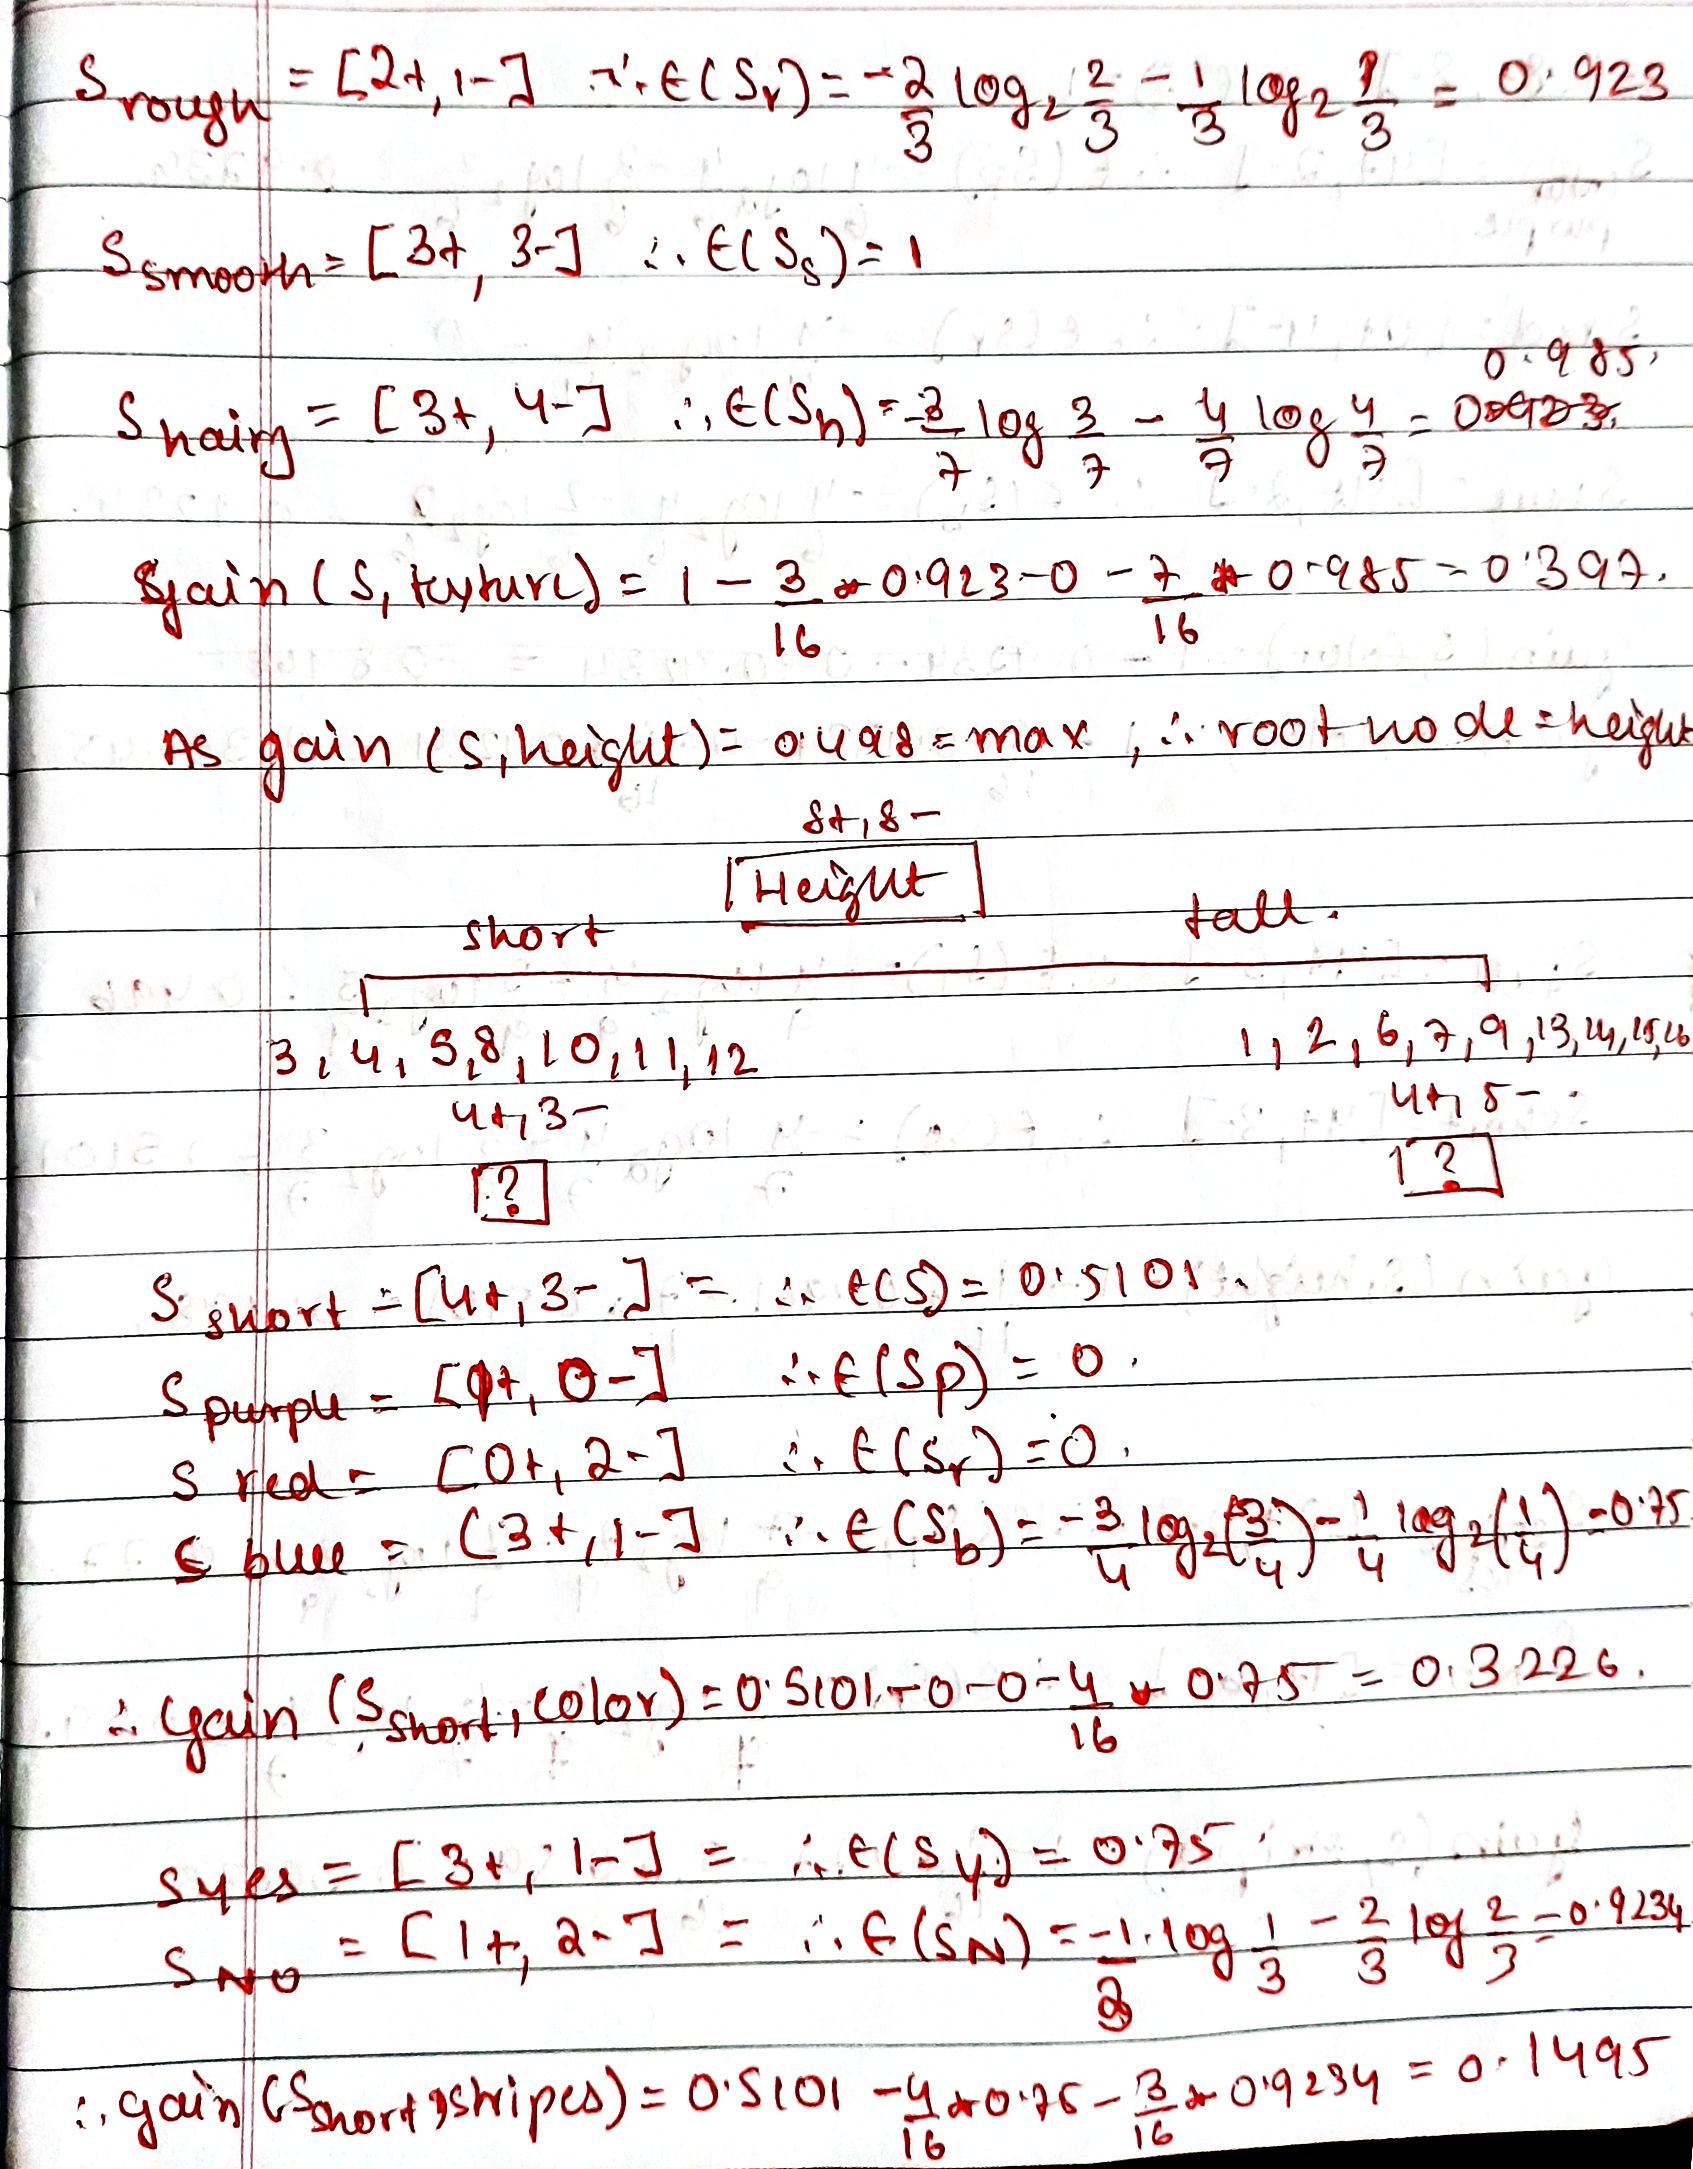 S rough = [2+, 1-] ∴ E(Sr) = -2/3 log2 2/3 - 1/3 log2 1/3 = 0.923
S smooth = [3+, 3-] ∴ E(Ss) = 1
0.985.
S hairy = [3+, 4-] ∴ E(Sh) = -3/7 log 3/7 - 4/7 log 4/7 =
gain (S, texture) = 1 - 3/16 * 0.923 - 0 - 7/16 * 0.985 = 0.397.
As gain (S, height) = 0.498 = max, ∴ root node = height
8+, 8-
Height
short tall.
3, 4, 5, 8, 10, 11, 12 1, 2, 6, 7, 9, 13, 14, 15, 16
4+, 3- 4+, 5-
? ?
S short = [4+, 3-] = ∴ E(S) = 0.5101.
S purple = [1+, 0-] ∴ E(Sp) = 0.
S red = [0+, 2-] ∴ E(Sr) = 0.
S blue = [3+, 1-] ∴ E(Sb) = -3/4 log2(3/4) - 1/4 log2(1/4) = 0.75
∴ gain (S short, color) = 0.5101 - 0 - 0 - 4/16 * 0.75 = 0.3226.
S yes = [3+, 1-] = ∴ E(Sy) = 0.75
S NO = [1+, 2-] = ∴ E(SN) = -1/3 log 1/3 - 2/3 log 2/3 = 0.9234
∴ gain (S short, stripes) = 0.5101 - 4/16 * 0.75 - 3/16 * 0.9234 = 0.1495